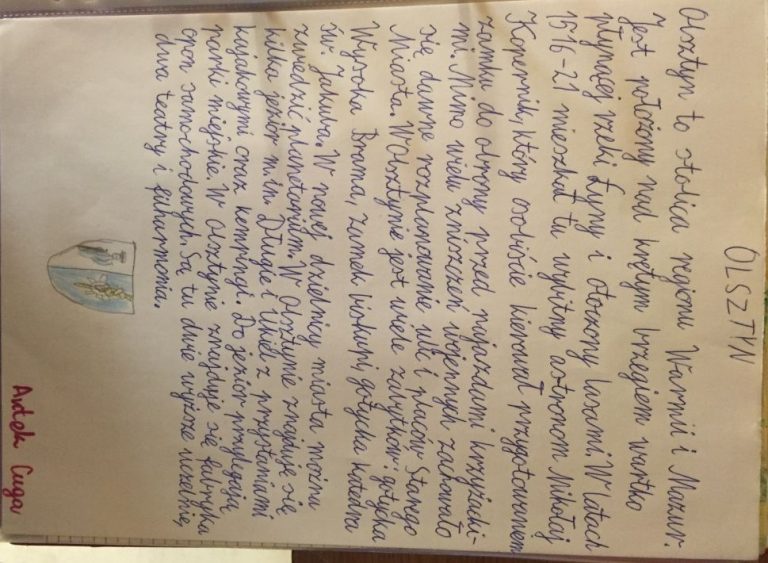 OLSZTYN
Olsztyn to stolica regionu Warmii i Mazur.
Jest położony nad krętym brzegiem wartko
płynącej rzeki Łyny i otoczony lasami. W latach
1516-21 mieszkał tu wybitny astronom Mikołaj
Kopernik, który osobiście kierował przygotowaniem
zamku do obrony przed najazdami krzyżacki-
mi. Mimo wielu zniszczeń wojennych zachowało
się dawne rozplanowanie ulic i placów Starego
Miasta. W Olsztynie jest wiele zabytków: gotycka
Wysoka Brama, zamek biskupi, gotycka katedra
św. Jakuba. W nowej dzielnicy miasta można
zwiedzić planetarium. W Olsztynie znajduje się
kilka jezior m.in. Długie i Ukiel z przystaniami
kajakowymi oraz kempingi. Do jezior przylegają
parki miejskie. W Olsztynie znajduje się fabryka
opon samochodowych. Są tu dwie wyższe uczelnie,
dwa teatry i filharmonia.
Antek Cuga